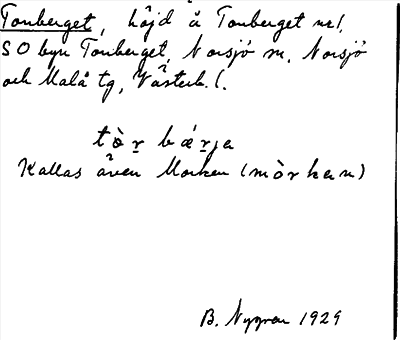 Tomberget, höjd å Tomberget nr 1,
SO byn Tomberget, Norsjö sn, Norsjö
och Malå tg, Västerb. l.
tò̱r bǽrja
Kallas även Morken (mòrken)
B. Nygren 1929